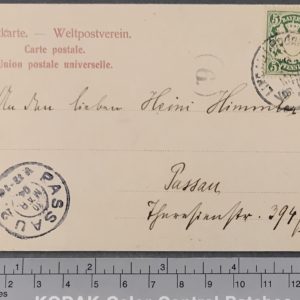 tkarte. — Weltpostverein.
Carte postale.
Union postale universelle.
5 BAYERN 5
PFENNIG
An den lieben Heini Himmler
Passau
Theresienstr. 394/
PASSAU
MÄR
KODAK Color Control Patches